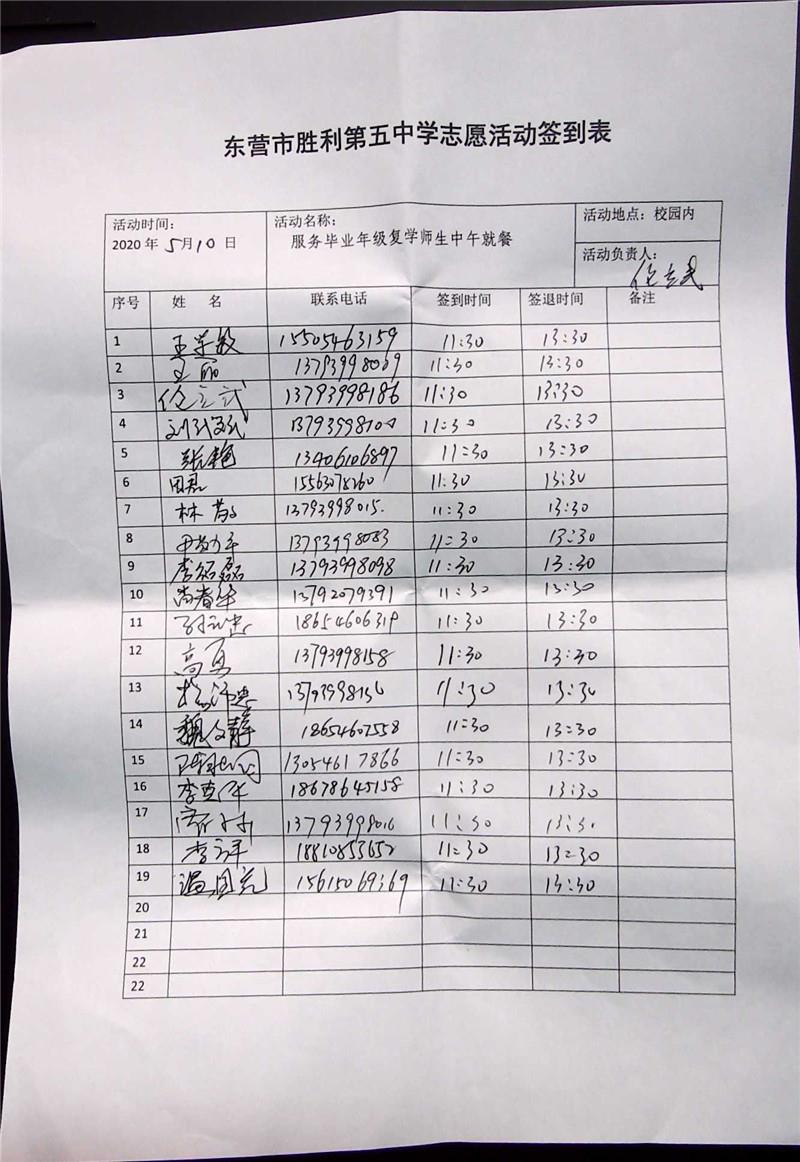 东营市胜利第五中学志愿活动签到表
活动时间: 活动名称: 活动地点：校园内
2020年 5月10日 服务毕业年级复学师生中午就餐
活动负责人:
序号 姓 名 联系电话 签到时间 签退时间 备注
1 王学敏 15505463159 11:30 13:30
2 王丽 13793998069 11:30 13:30
3 13793998186 11:30 13:30
4 13793998100 11:30 13:30
5 张艳 13406106897 11:30 13:30
6 田君 15563078260 11:30 13:30
7 林 13793998015. 11:30 13:30
8 13793998083 11:30 13:30
9 李绍磊 13793998098 11:30 13:30
10 尚春华 13792079391 11:30 13:30
11 18654606319 11:30 13:30
12 高勇 13793998158 11:30 13:30
13 11:30 13:30
14 魏文静 18654607558 11:30 13:30
15 13054617866 11:30 13:30
16 18678645158 11:30 13:30
17 13793998016 11:30 13:30
18 李祥 18810853652 11:30 13:30
19 温国 15615069369 11:30 13:30
20
21
22
22